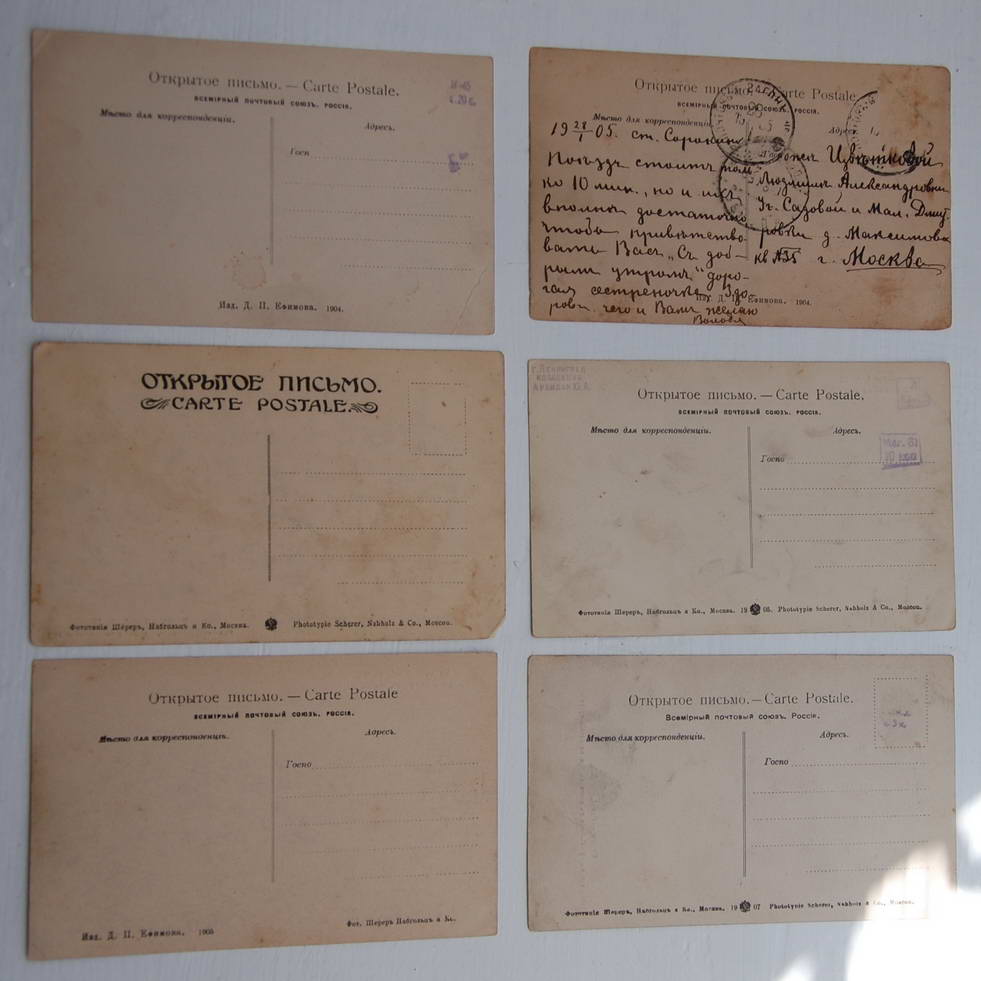 Открытое письмо. — Carte Postale.
ВСЕМІРНЫЙ ПОЧТОВЫЙ СОЮЗЪ. РОССІЯ.
Мѣсто для корреспонденціи.
Адресъ.
Госп
Изд. Д. П. Ефимова. 1904.
Открытое письмо. — Carte Postale.
ВСЕМІРНЫЙ ПОЧТОВЫЙ СОЮЗЪ. РОССІЯ.
Мѣсто для корреспонденціи
Адресъ
19 28/1 05. ст. Сорокино
Поѣздъ стоитъ толь
ко 10 мин., но и
вполнѣ достаточно
чтобы привѣтство
вать Васъ „Съ доб-
рымъ утромъ" доро-
гая сестреночка. Здо
ровья чего и Вамъ желаю
Володя
Цвѣтковой
Людмилѣ Александровнѣ
Уг. Садовой и Мал. Дмит
ровки д. Максимова
кв №35 г. Москва
Изд. Д. П. Ефимова. 1904.
ОТКРЫТОЕ ПИСЬМО.
CARTE POSTALE.
Фототипія Шереръ, Набгольцъ и Ко., Москва. Phototypie Scherer, Nabholz & Co., Moscou.
г. Ленинград
Открытое письмо. — Carte Postale.
ВСЕМІРНЫЙ ПОЧТОВЫЙ СОЮЗЪ. РОССІЯ.
Мѣсто для корреспонденціи.
Адресъ.
Госпо
Маг. 61
10 коп
Фототипія Шереръ, Набгольцъ и Ко., Москва. 19 05. Phototypie Scherer, Nabholz & Co., Moscou.
Открытое письмо. — Carte Postale
ВСЕМІРНЫЙ ПОЧТОВЫЙ СОЮЗЪ. РОССІЯ.
Мѣсто для корреспонденціи.
Адресъ.
Госпо
Изд. Д. П. Ефимова. 1905
Фот. Шереръ Набгольцъ и Ко.
Открытое письмо. — Carte Postale.
Всемірный почтовый союзъ. Россія.
Мѣсто для корреспонденціи.
Адресъ.
Госпо
Фототипія Шереръ, Набгольцъ и Ко., Москва. 19 07 Phototypie Scherer, Nabholz & Co., Moscou.